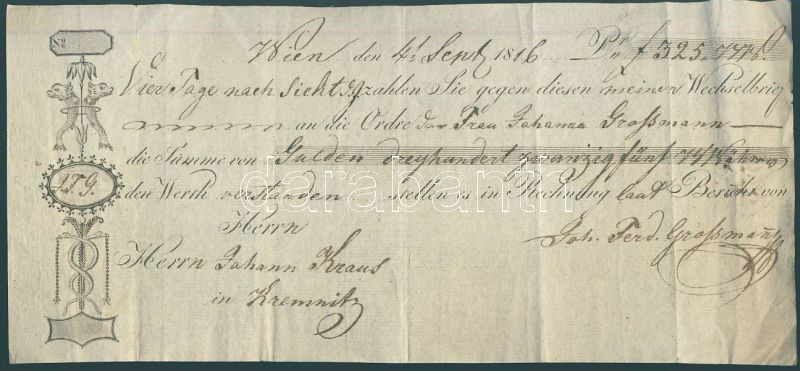 No
Wien den 4t Sept 1816 Pr f 325.
Vier Tage nach Sicht zahlen Sie gegen diesen meinen Wechselbrief
an die Ordre der Frau Johanna Großmann
die Summe von Gulden dreyhundert zwanzig fünf
J.F.G.
den Werth verstanden stellen es in Rechnung laut Bericht von
Herrn
Joh. Ferd. Großmann
Herrn Johann Kraus
in Kremnitz
darabanth